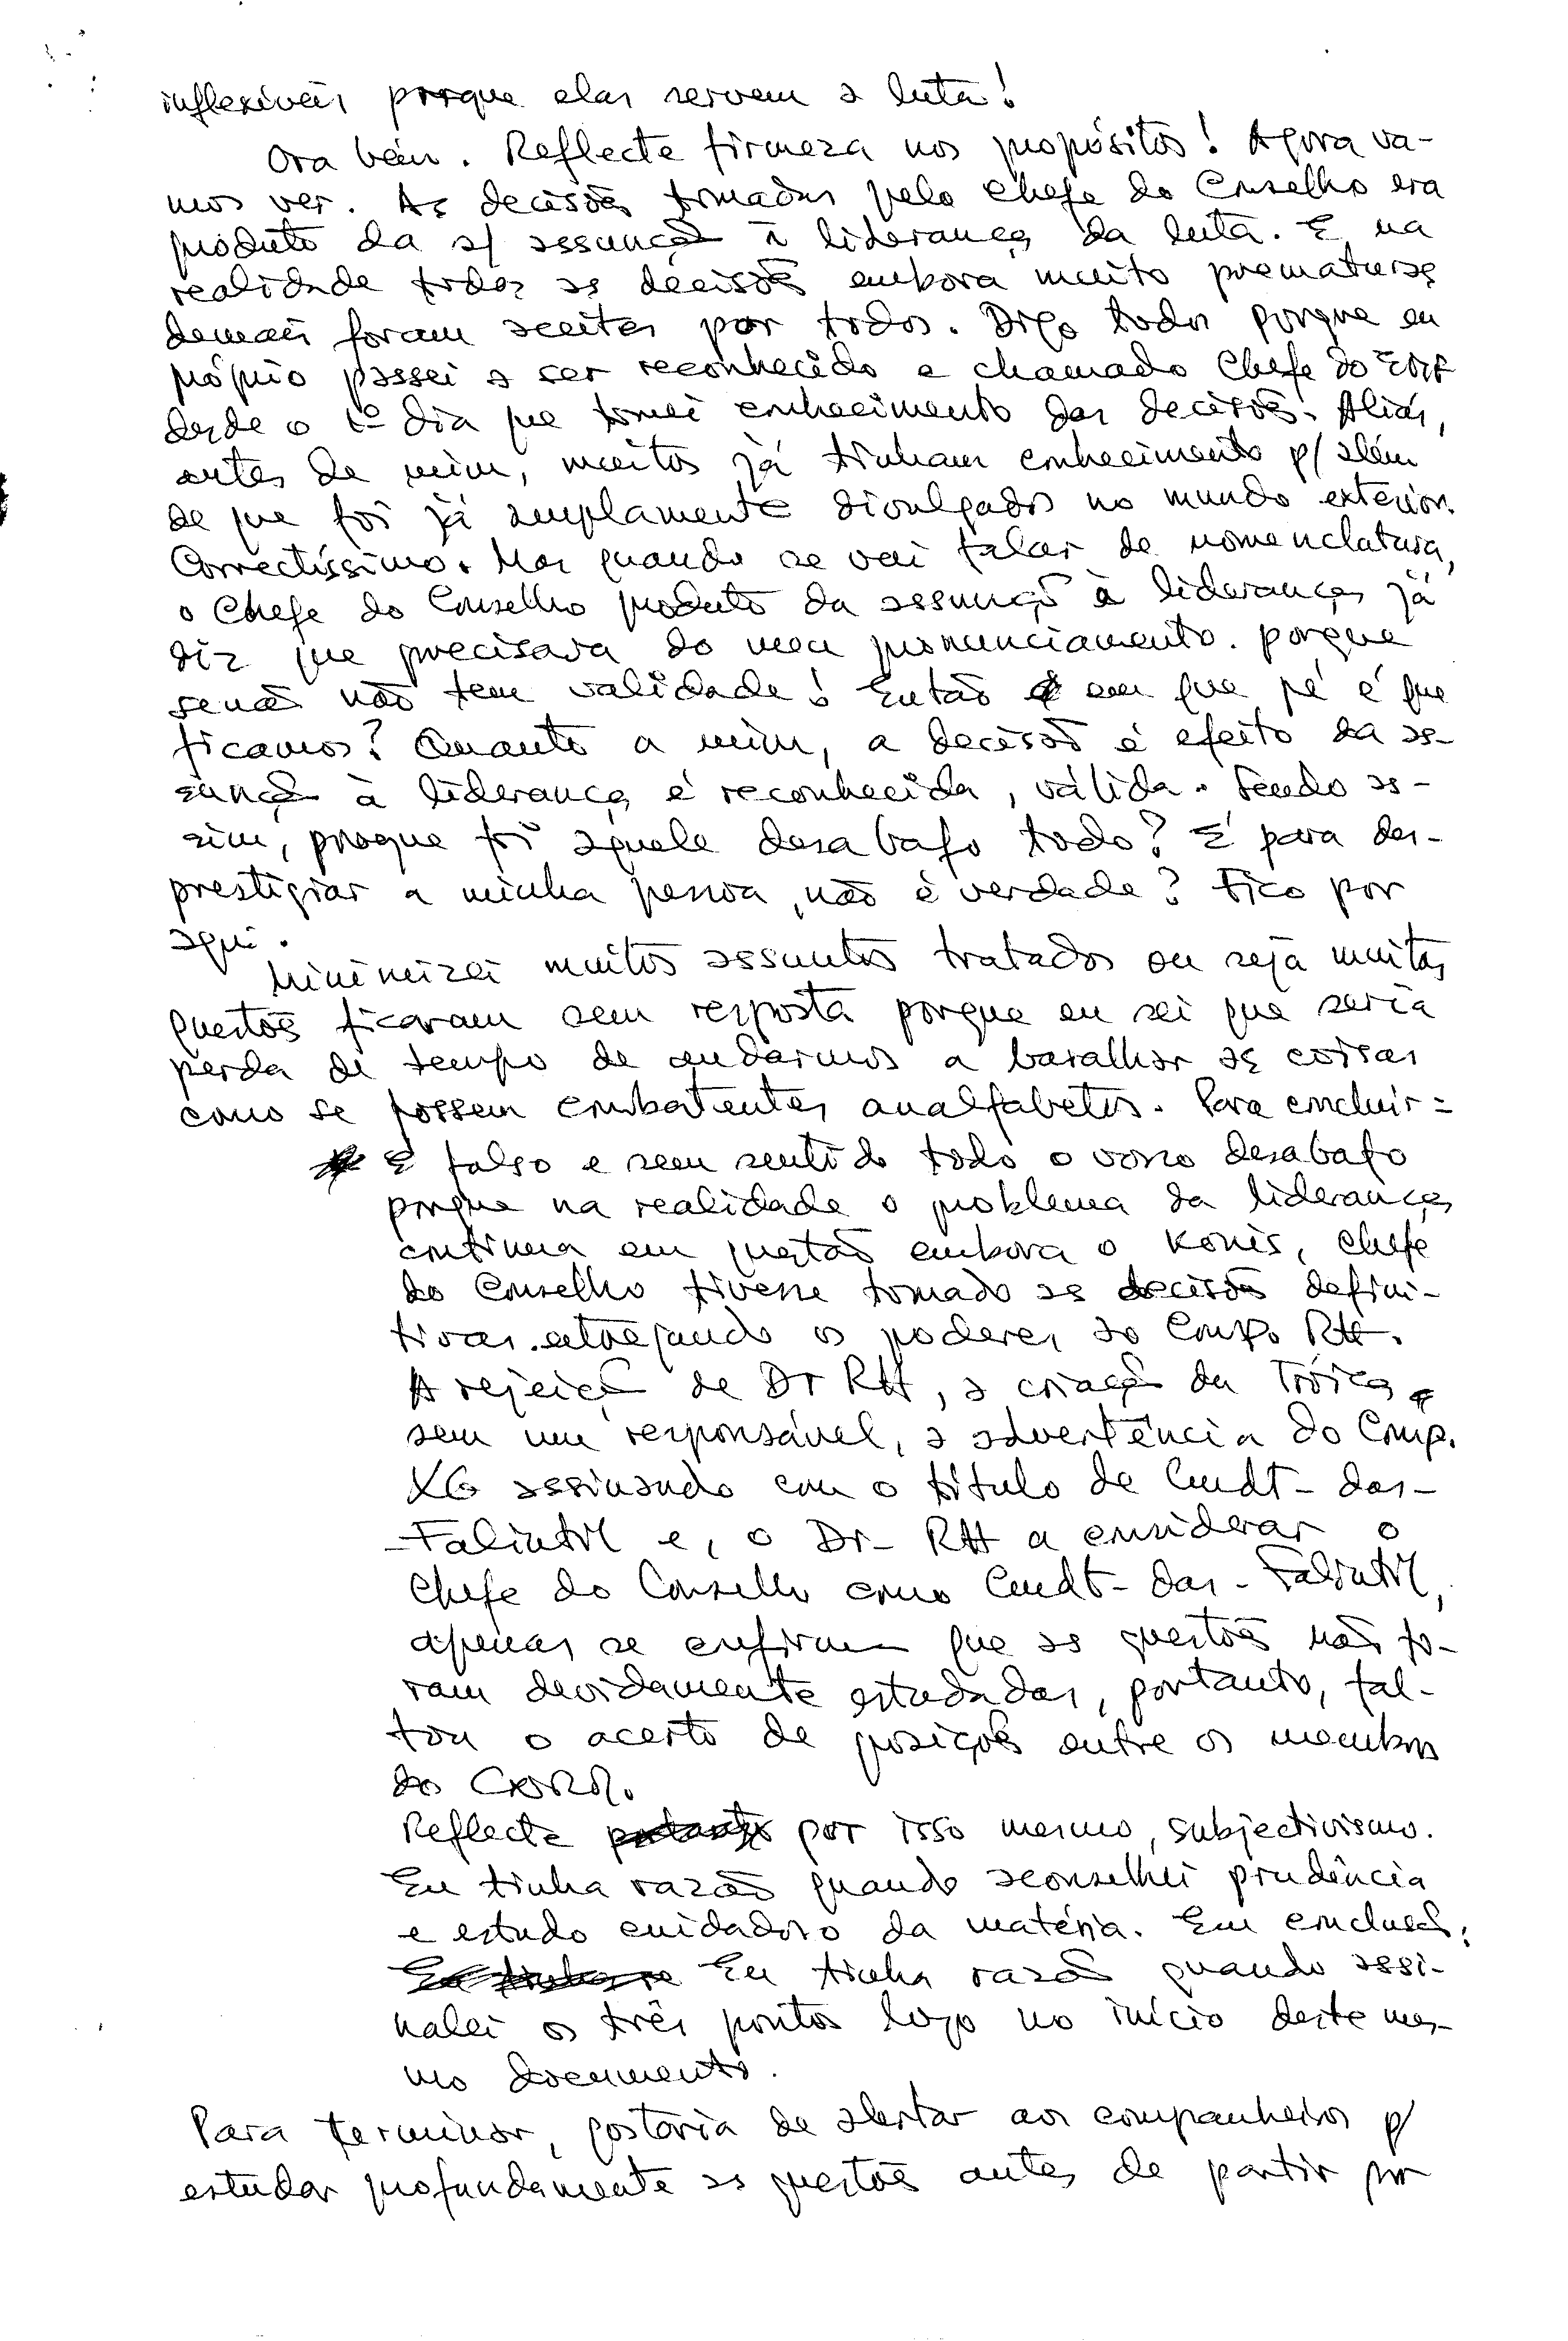 inflexíveis porque elas servem a luta!
Ora bem. Reflecte firmeza nos propósitos! Agora va-
mos ver. As decisões tomadas pelo Chefe do Conselho era
produto da s/ assunção à liderança da luta. E, na
realidade todas as decisões embora muito prematuras
demais foram aceites por todos. Digo todos porque eu
próprio passei a ser reconhecido e chamado Chefe do
desde o 1º dia que tomei conhecimento das decisões. Aliás,
antes de mim, muitos já tinham conhecimento p/ além
de que foi já amplamente divulgado no mundo exterior.
Correctíssimo. Mas quando se vai falar de nomenclatura,
o Chefe do Conselho produto da assunção à liderança já
diz que precisava do meu pronunciamento. porque
senão não tem validade! Então em que pé é que
ficamos? Quanto a mim, a decisão é efeito da as-
sunção à liderança é reconhecida, válida. Sendo as-
sim, porque foi aquele desabafo todo? É para des-
prestigiar a minha pessoa, não é verdade? Fico por
aqui.
Minimizei muitos assuntos tratados ou seja muitas
questões ficaram sem resposta porque eu sei que seria
perda de tempo de andarmos a baralhar as coisas
como se fossem combatentes analfabetos. Para concluir =
É falso e sem sentido todo o vosso desabafo
porque na realidade o problema da liderança
continua em questão embora o Konis, Chefe
do Conselho tivesse tomado as decisões defini-
tivas entregando os poderes ao Comp. RH.
A rejeição de Dr RH, a criação da Tróica
sem um responsável, a advertência do Comp.
XG assinando com o título de Cmdt-das-
-Falintil e, o Dr- RH a considerar o
Chefe do Conselho como Cmdt-das-Falintil,
apenas se confirma que as questões não fo-
ram devidamente estudadas, portanto, fal-
tou o acerto de posições entre os membros
do CRRN.
Reflecte por isso mesmo, subjectivismo.
Eu tinha razão quando aconselhei prudência
e estudo cuidadoso da matéria. Em conclusão:
Eu tinha razão quando assi-
nalei os três pontos logo no início deste mes-
mo documento.
Para terminar, gostaria de alertar aos companheiros p/
estudar profundamente as questões antes de partir por